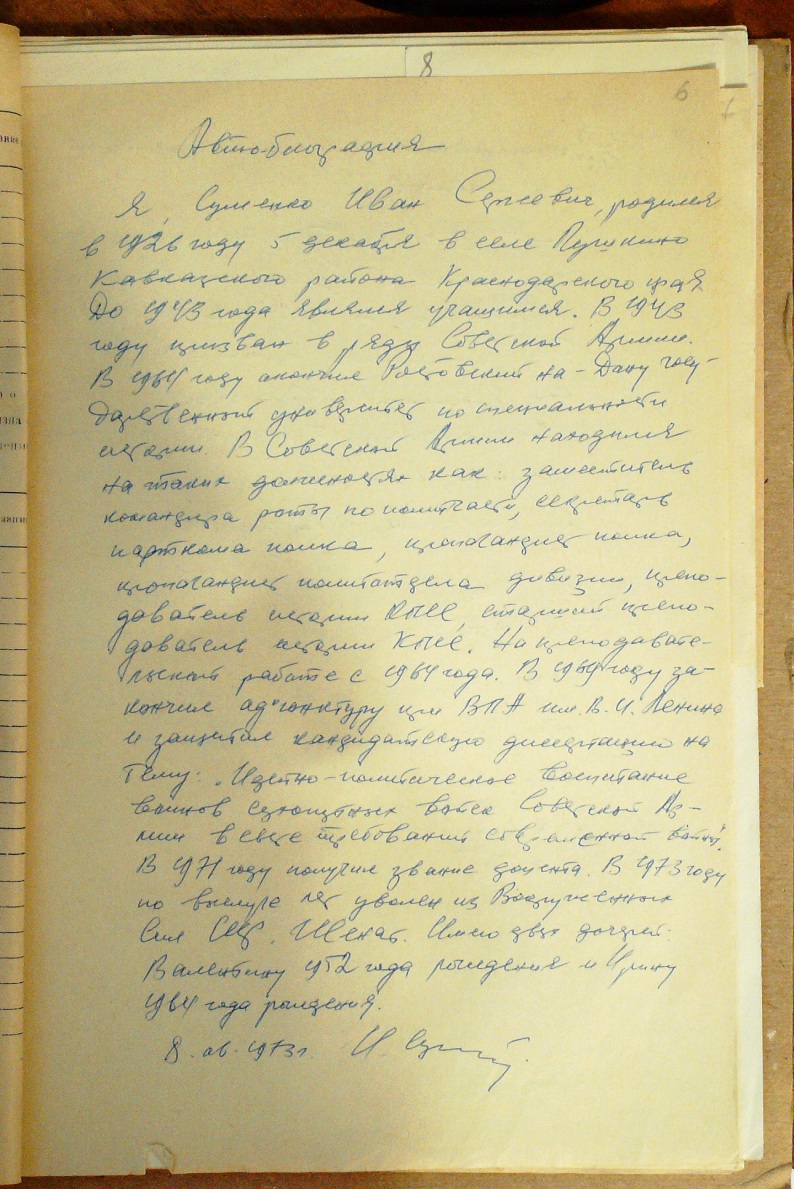 8
6
Автобиография
Я, Суменко Иван Сергеевич, родился
в 1926 году 5 декабря в селе Пушкино
Кавказского района Краснодарского края
До 1943 года являлся учащимся. В 1943
году призван в ряды Советской Армии.
В 1964 году окончил Ростовский на-Дону госу-
дарственный университет по специальности
история. В Советской Армии находился
на таких должностях как: заместитель
командира роты по политчасти, секретарь
парткома полка, пропагандист полка,
пропагандист политотдела дивизии, препо-
даватель истории КПСС, старший препо-
даватель истории КПСС. На преподавате-
льской работе с 1964 года. В 1969 году за-
кончил ад"юнктуру при ВПА им. В.И. Ленина
и защитил кандидатскую диссертацию на
тему: „Идейно-политическое воспитание
воинов сухопутных войск Советской Ар-
мии в свете требований современной войны".
В 1971 году получил звание доцента. В 1973 году
по выслуге лет уволен из Вооруженных
Сил СССР. Женат. Имею двух дочерей:
Валентину 1952 года рождения и Ирину
1964 года рождения.
8. ав. 1973г.